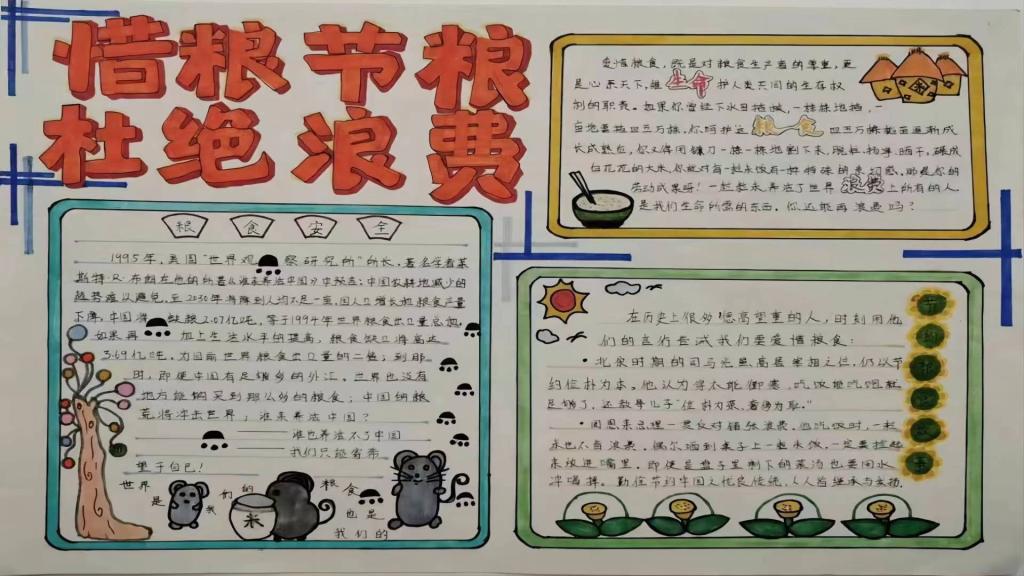 惜粮节粮
杜绝浪费
粮食安全
1995年,美国"世界观察研究所"所长,著名学者莱
斯特·R·布朗在他的所著《谁来养活中国》中预言:中国农耕地减少的
趋势难以避免,至2030年将降到人均不足一亩,因人口增长和粮食产量
下降,中国将缺粮2.07亿吨,等于1994年世界粮食出口量总和,
如果再加上生活水平的提高,粮食缺口将高达
3.69亿吨,为目前世界粮食出口量的二倍;到那
时,即使中国有足够多的外汇,世界也没有
地方能购买到那么多的粮食;中国纳粮
荒将冲击世界,谁来养活中国?
——谁也养活不了中国
——我们只能寄希
望于自己!
世界是我们的
粮食也是我们的
米
爱惜粮食,既是对粮食生产者的尊重,更
是心系天下,维生命护人类共同的生存权
利的职责。如果你曾经下水日插秧,一株株地插,一
亩地要插四五万株,你呵护这粮食四五万株秧苗逐渐成
长成熟后,你又得用镰刀一株一株地割下来,脱粒、扬净、晒干、碾成
白花花的大米,你就对每一粒米饭有一种特殊的亲切感,那是你的
劳动成果呀!一粒粒米养活了世界浪费上所有的人,
是我们生命所需的东西,你还能再浪费吗?
在历史上很多德高望重的人,时刻用他
们的言传告诫我们要爱惜粮食:
·北宋时期的司马光虽高居宰相之位,仍以节
约俭朴为本。他认为穿衣能御寒,吃饭能吃饱就
足够了,还教导儿子"俭朴为荣,奢侈为耻。"
·周恩来总理一贯反对铺张浪费,他吃饭时,一粒
米也不肯浪费。偶尔洒到桌子上一粒米饭,一定要捡起
来放进嘴里,即使是盘子里剩下的菜汤也要用水
冲喝掉。勤俭节约中国之优良传统,人人当继承与发扬